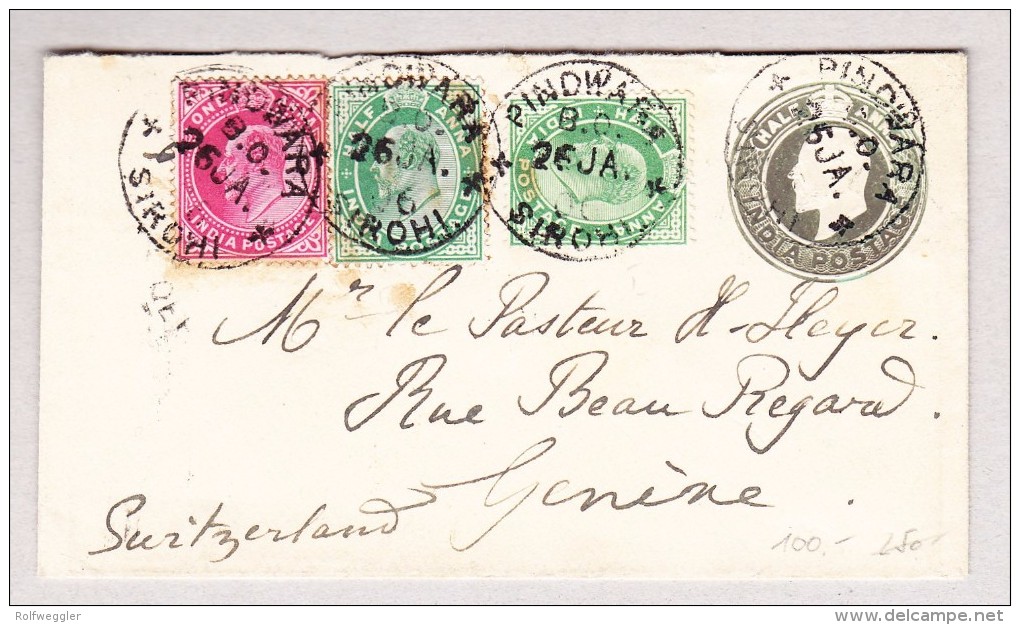 ONE ANNA
INDIA POSTAGE
HALF ANNA
INDIA POSTAGE
HALF ANNA
INDIA POSTAGE
HALF ANNA
INDIA POSTAGE
PINDWARA
B.O.
26 JA.
SIROHI
PINDWARA
B.O.
26 JA.
06
SIROHI
PINDWARA
B.O.
26 JA.
SIROHI
PINDWARA
B.O.
5 JA.
Mr le Pasteur H. Heyer.
Rue Beau Regard.
Genève.
Switzerland
100.- 250-
Rolfweggler
delcampe.net